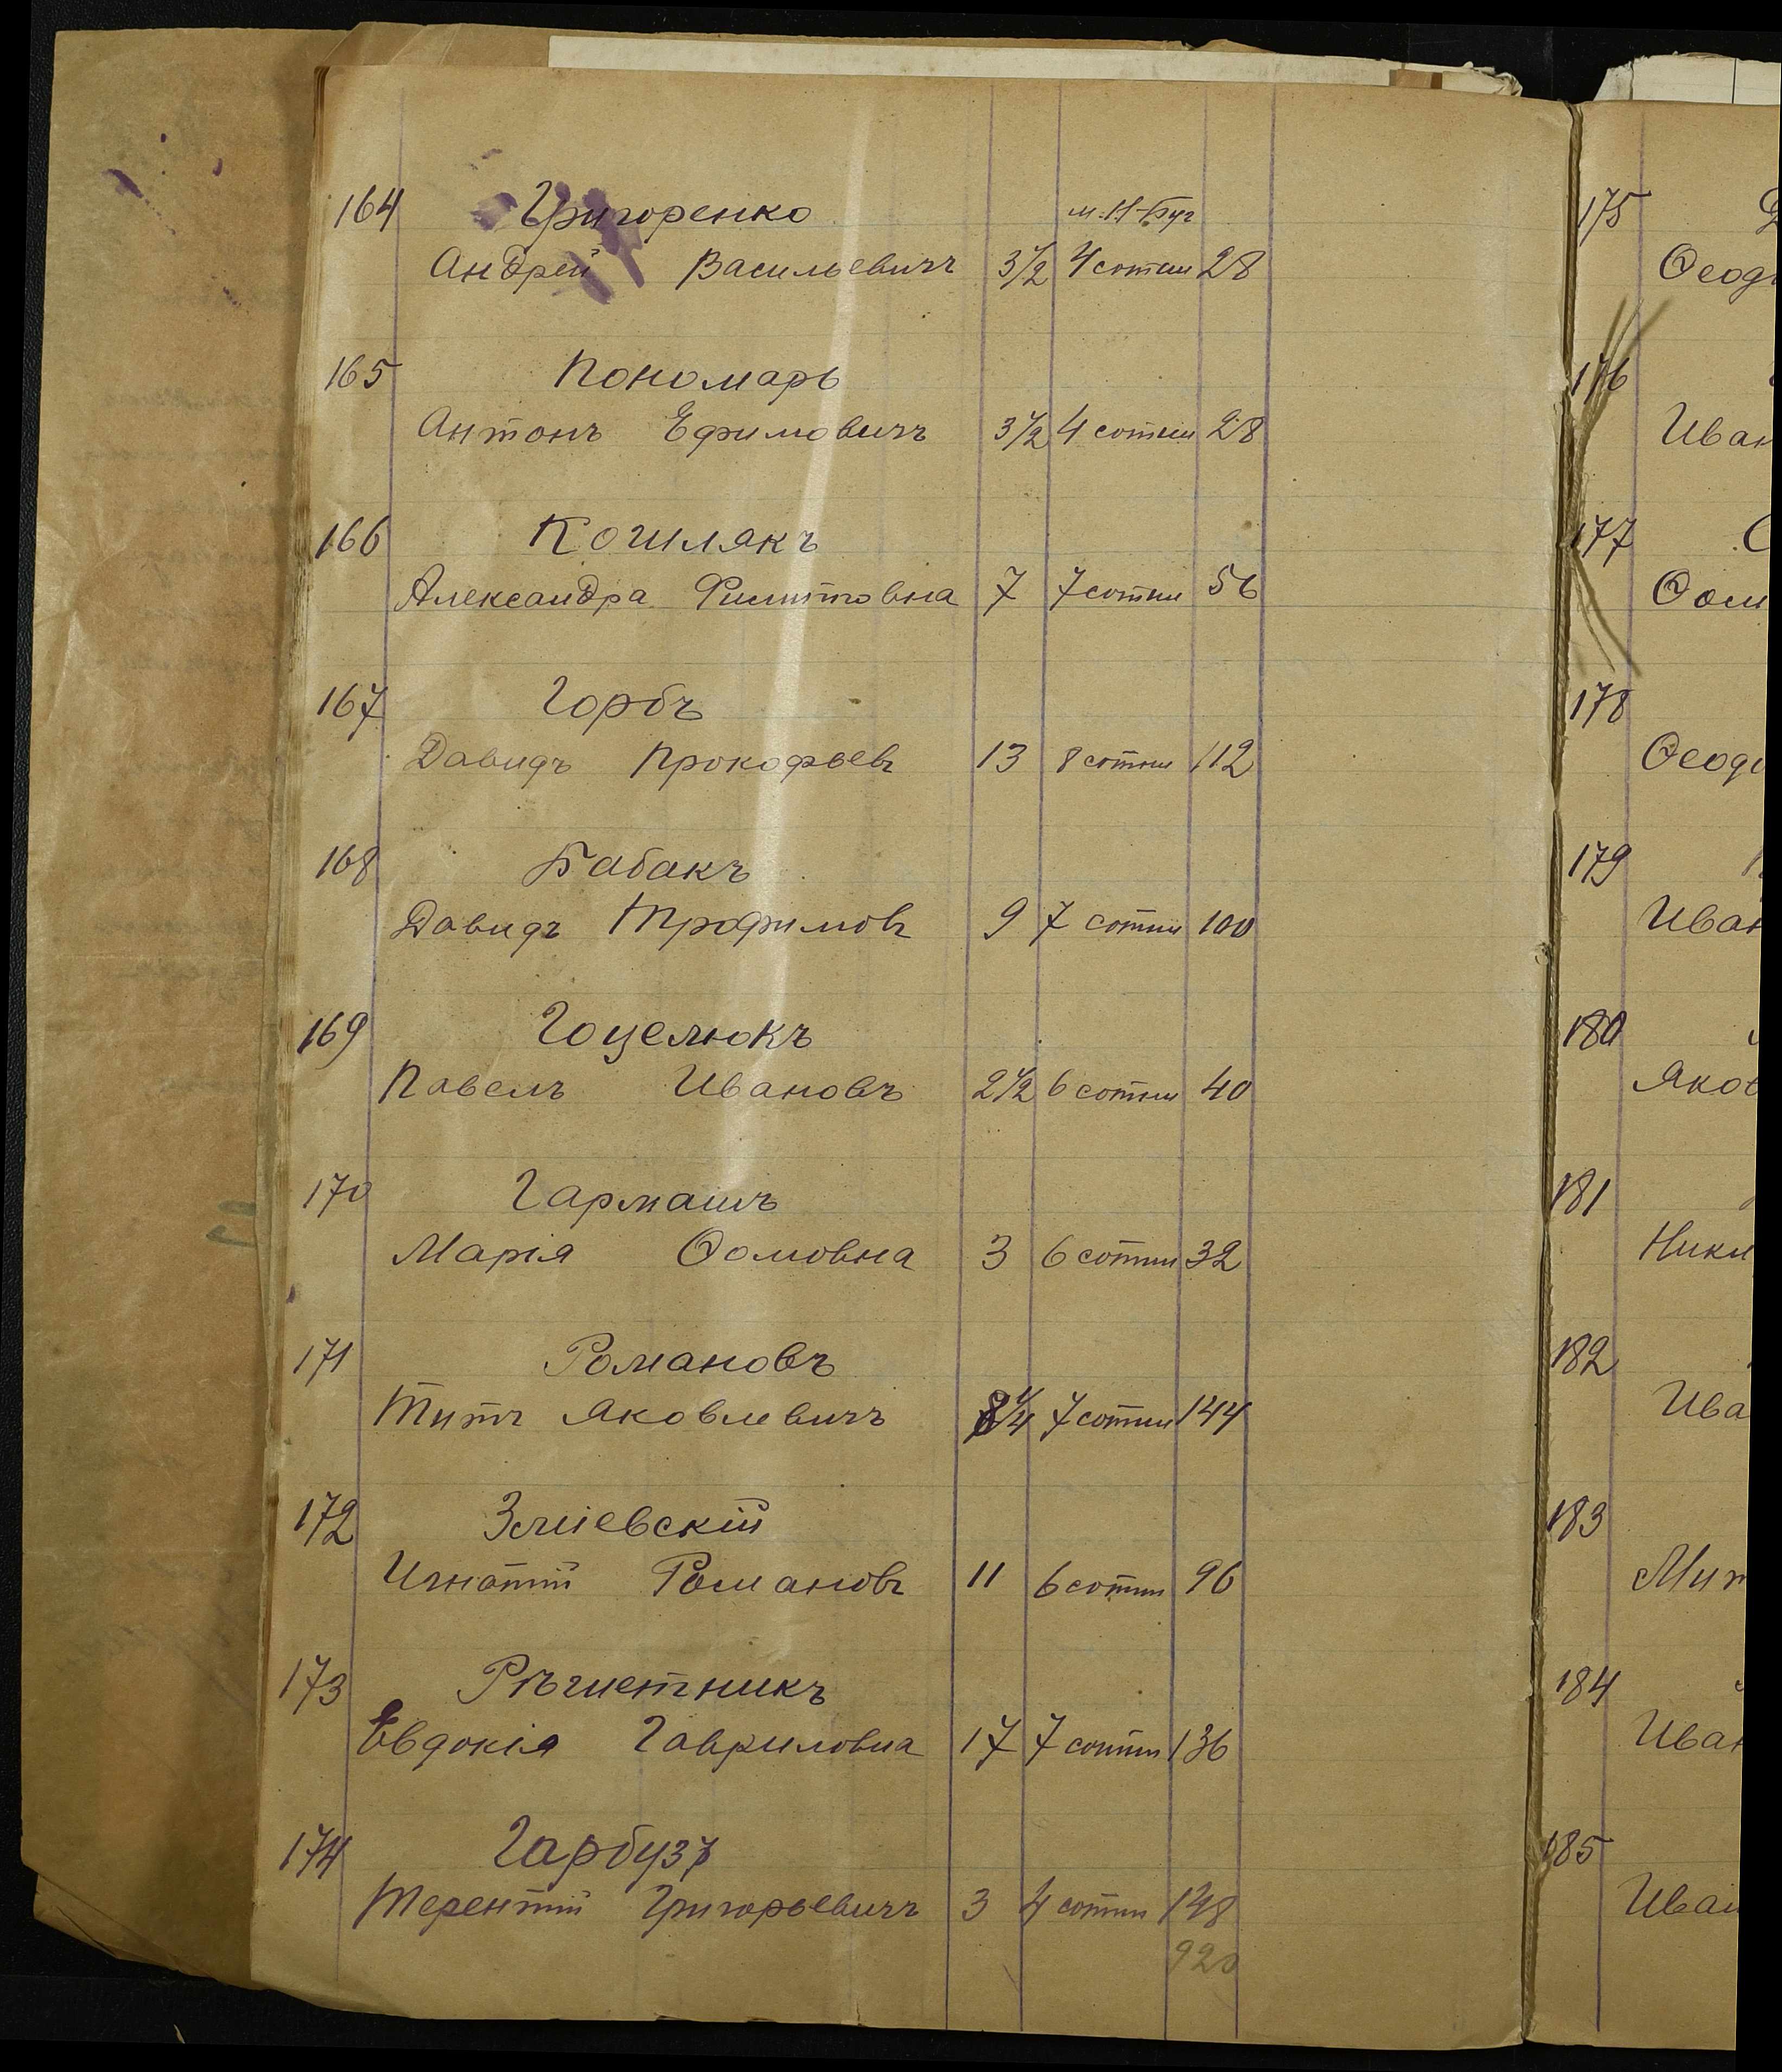 164 Григоренко м. Н-Буг
Андрей Васильевичъ 3 1/2 4 сотни 28
165 Пономарь
Антонъ Ефимовичъ 3 1/2 4 сотни 28
166 Кошлякъ
Александра Филиповна 7 7 сотни 56
167 Горбъ
Давидъ Прокофьевъ 13 8 сотни 112
168 Бабакъ
Давидъ Трофимовъ 9 7 сотни 100
169 Гоцелюкъ
Павелъ Ивановъ 2 1/2 6 сотни 40
170 Гармашъ
Марія Ѳомовна 3 6 сотни 32
171 Романовъ
Титъ Яковлевичъ 8 1/4 7 сотни 144
172 Зміевскій
Игнатій Романовъ 11 6 сотни 96
173 Рѣшетникъ
Евдокія Гавриловна 17 7 сотни 136
174 Гарбузъ
Терентій Григорьевичъ 3 4 сотни 148
920
175
Ѳеод
176
Иван
177
Ѳом
178
Ѳеод
179
Иван
180
Яков
181
Ники
182
Ива
183
Мит
184
Иван
185
Иван